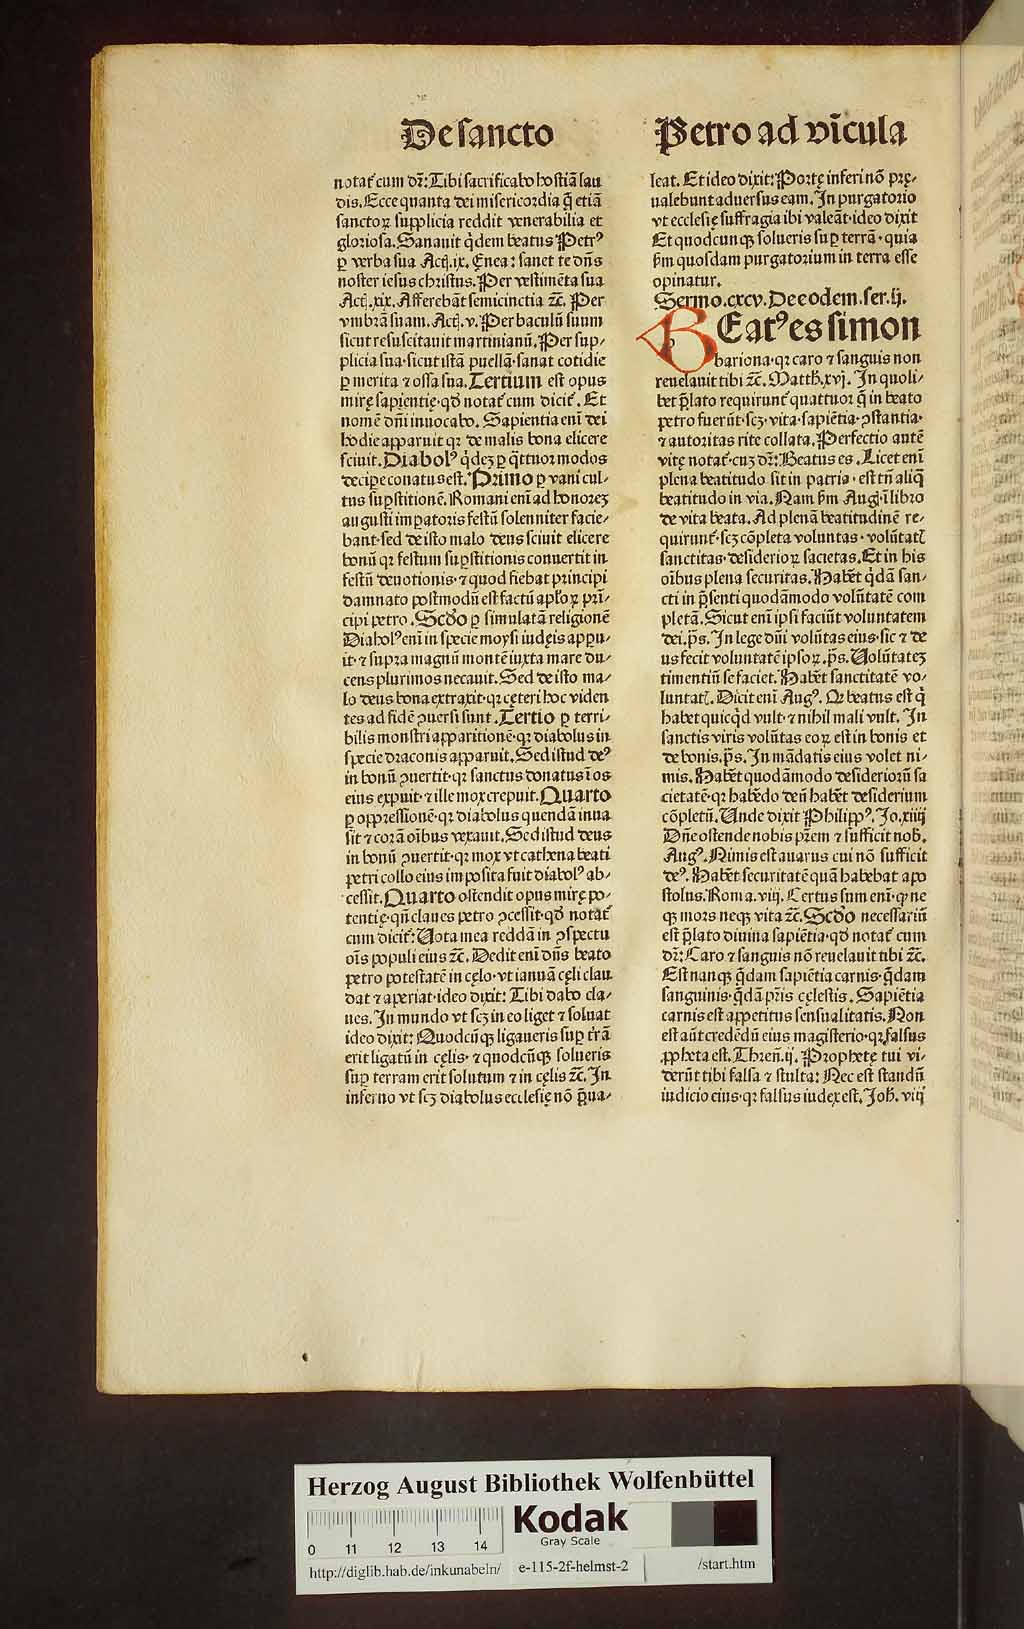 De sancto
notat᷑ cum dr̄: Tibi sacrificabo hostiā lau
dis. Ecce quanta dei misericordia q̄ etiā
sanctoꝝ supplicia reddit venerabilia et
gloriosa. Sanauit q̇dem beatus Petrꝰ
ꝑ verba sua Act̄. ix. Enea: sanet te dn̄s
noster iesus christus. Per vestimēta sua
Act̄. xix. Afferebāt semicinctia ⁊c̄. Per
vmbrā suam. Act̄. v. Per baculū suum
sicut resuscitauit martinianū. Per sup⸗
plicia sua·sicut istā puellā·sanat cotidie
ꝑ merita ⁊ ossa sua. Tertium est opus
mirę sapientię·qd̄ notat᷑ cum dicit᷑. Et
nomē dn̄i inuocabo. Sapientia enī dei
hodie apparuit qꝛ de malis bona elicere
sciuit. Diabolꝰ q̇deꝫ ꝑ q̄ttuor modos
decipe conatus est. Primo ꝑ vani cul⸗
tus suꝑstitionē. Romani enī ad honoreꝫ
augusti imꝑatoris festū solenniter facie⸗
bant·sed de isto malo deus sciuit elicere
bonū qꝛ festum suꝑstitionis conuertit in
festū deuotionis·⁊ quod fiebat principi
damnato postmodū est factū apl'oꝝ prin̄⸗
cipi petro. Scd̄o ꝑ simulatā religionē
Diabolꝰ enī in specie moysi iudęis appu⸗
it·⁊ supra magnū montē iuxta mare du⸗
cens plurimos necauit. Sed de isto ma⸗
lo deus bona extraxit·qꝛ cęteri hoc viden
tes ad fidē ꝯuersi sunt. Tertio ꝑ terri⸗
bilis monstri apparitionē·qꝛ diabolus in
specie draconis apparuit. Sed istud deꝰ
in bonū ꝯuertit·qꝛ sanctus donatus ī os
eius expuit·⁊ ille mox crepuit. Quarto
ꝑ oppressionē·qꝛ diabolus quendā inua
sit ⁊ corā oībus vexauit. Sed istud deus
in bonū ꝯuertit·qꝛ mox vt cathena beati
petri collo eius imposita fuit diabolꝰ ab⸗
cessit. Quarto ostendit opus mirę po⸗
tentię·qn̄ claues petro ꝯcessit·qd̄ notat᷑
cum dicit᷑: Uota mea reddā in ꝯspectu
oīs populi eius ⁊c̄. Dedit enī dn̄s beato
petro potestatē in cęlo·vt ianuā cęli clau
dat ⁊ aperiat·ideo dixit: Tibi dabo cla⸗
ues. In mundo vt scꝫ in eo liget ⁊ soluat
ideo dixit: Quodcūqꝫ ligaueris suꝑ trā
erit ligatū in cęlis·⁊ quodcūqꝫ solueris
suꝑ terram erit solutum ⁊ in cęlis ⁊c̄. In
inferno vt scꝫ diabolus ecclesię nō p̄ua⸗
Petro ad vīcula
leat. Et ideo dixit: Portę inferi nō prę⸗
ualebunt aduersus eam. In purgatorio
vt ecclesię suffragia ibi valeāt·ideo dixit
Et quodcunqꝫ solueris suꝑ terrā·quia
ẜm quosdam purgatorium in terra esse
opinatur.
Sermo. cxcv. De eodem. ser. ij.
BEatꝰ es simon
bariona·qꝛ caro ⁊ sanguis non
reuelauit tibi ⁊c̄. Matth. xvj. In quoli⸗
bet p̄lato requirunt᷑ quattuor q̄ in beato
petro fuerūt·scꝫ·vita·sapiētia·ꝯstantia·
⁊ autoritas rite collata. Perfectio autē
vitę notat᷑·cuꝫ dr̄: Beatus es. Licet enī
plena beatitudo sit in patria·est tn̄ aliq̄
beatitudo in via. Nam ẜm Aug. ī libro
de vita beata. Ad plenā beatitudinē re⸗
quirunt᷑·scꝫ cōpleta voluntas·volūtatꝭ
sanctitas·desiderioꝝ sacietas. Et in his
oībus plena securitas. Habēt q̇dā san⸗
cti in p̄senti quodāmodo volūtatē com
pletā. Sicut enī ipsi faciūt voluntatem
dei. p̄s. In lege dn̄i volūtas eius·sic ⁊ de
us fecit voluntatē ipsoꝝ. p̄s. Uolūtateꝫ
timentiū se faciet. Habēt sanctitatē vo⸗
luntatꝭ. Dicit enī Augꝰ. Qꝛ beatus est q̇
habet quicq̇d vult·⁊ nihil mali vult. In
sanctis viris volūtas eoꝝ est in bonis et
de bonis. p̄s. In mādatis eius volet ni⸗
mis. Habēt quodāmodo desideriorū sa
cietatē·qꝛ habēdo deū habēt desiderium
cōpletū. Unde dixit Philippꝰ. Jo. xiiij
Dn̄e ostende nobis prēm ⁊ sufficit nob̄.
Augꝰ. Nimis est auarus cui nō sufficit
deꝰ. Habēt securitatē quā habebat apo
stolus. Roma. viij. Certus sum enī·ꝙ ne
qꝫ mors neqꝫ vita ⁊c̄. Scd̄o necessariū
est p̄lato diuina sapiētia·qd̄ notat᷑ cum
dr̄: Caro ⁊ sanguis nō reuelauit tibi ⁊c̄.
Est nanqꝫ q̄dam sapiētia carnis·q̄dam
sanguinis·q̄dā p̄ris cęlestis. Sapiētia
carnis est appetitus sensualitatis. Non
est aūt credēdū eius magisterio·qꝛ falsus
ꝓpheta est. Thren̄. ij. Prophetę tui vi⸗
derūt tibi falsa ⁊ stulta: Nec est standū
iudicio eius·qꝛ falsus iudex est. Joh. viij
Herzog August Bibliothek Wolfenbüttel
0 11 12 13 14
Kodak
Gray Scale
http://diglib.hab.de/inkunabeln/ e-115-2f-helmst-2 /start.htm